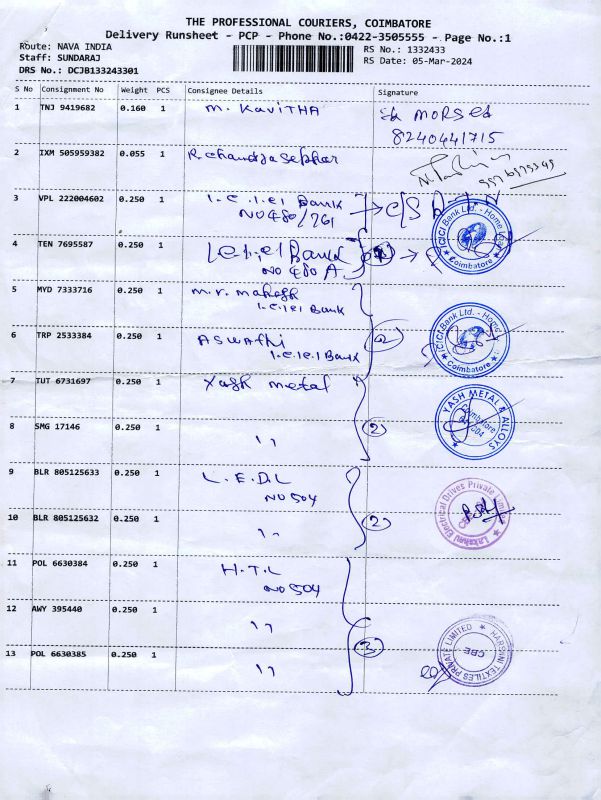 THE PROFESSIONAL COURIERS, COIMBATORE
Delivery Runsheet - PCP - Phone No.:0422-3505555 - Page No.:1
Route: NAVA INDIA
RS No.: 1332433
Staff: SUNDARAJ
RS Date: 05-Mar-2024
DRS No.: DCJB133243301
S No Consignment No Weight PCS Consignee Details Signature
1 TNJ 9419682 0.160 1 M. KAVITHA
8240441715
2 IXM 505959382 0.055 1 R. Chandrasekhar
3 VPL 222004602 0.250 1 I.C.I.CI Bank
NO 480/761
ICICI Bank Ltd. - Home Loan
Coimbatore
4 TEN 7695587 0.250 1 I.C.I.CI Bank
NO 480 A
5 MYD 7333716 0.250 1 M.V. Mahesh
I.C.I.CI Bank
ICICI Bank Ltd. - Home
Coimbatore
6 TRP 2533384 0.250 1 ASWATHI
I.C.I.CI Bank
7 TUT 6731697 0.250 1 Yash metal
YASH METAL & ALLOYS
Coimbatore
8 SMG 17146 0.250 1 ,, (2)
9 BLR 805125633 0.250 1 L.E.D.L
NO 504
Lakshmi Electrical Drives Private Limited
10 BLR 805125632 0.250 1 ,, (2)
11 POL 6630384 0.250 1 H.T.L
NO 504
12 AWY 395440 0.250 1 ,,
HARSHNI TEXTILES PRIVATE LIMITED
CBE
13 POL 6630385 0.250 1 ,, (3)